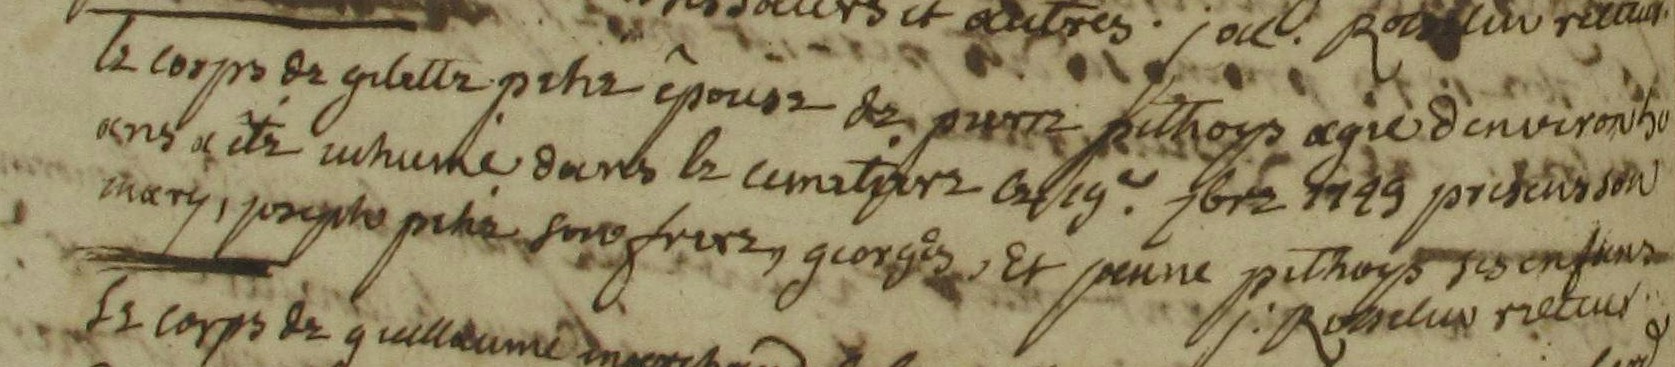 et autres. j
le corps de gilette pehé épouse de pierre pithoys agée d'environ
ans a été inhumé dans le cimetiere ce 19e. 7bre 1749 presens son
mary, joseph pehé son frere, georges, Et jeanne pithoys ses enfans
j. Rosselin recteur.
Le corps de guillaume